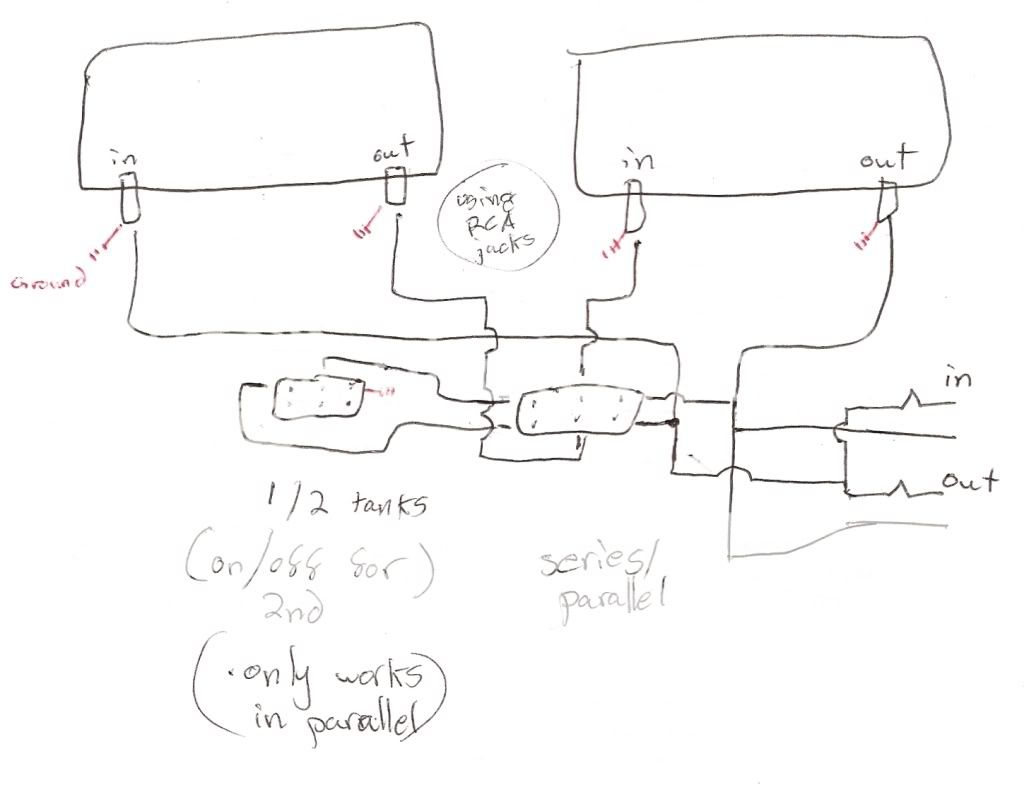 in
out
in
out
using
RCA
jacks
Ground
in
out
1/2 tanks
(on/off for)
2nd
series/
parallel
(•only works
in parallel)